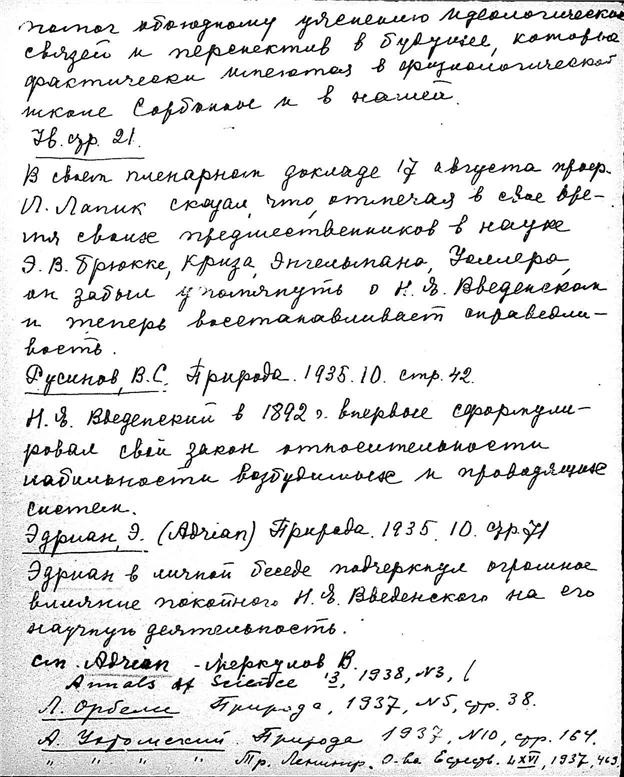 помог обоюдному уяснению идеологических
связей и перспектив в будущее, которые
фактически имеются в физиологической
школе Сорбонны и в нашей.
Iв. стр. 21.
В своем пленарном докладе 17 августа проф.
Л. Лапик сказал, что, отмечая в свое вре-
мя своих предшественников в науке
Э. В. Брюкке, Криза, Энгельмана, Уоллера,
он забыл упомянуть о Н. Е. Введенском
и теперь восстанавливает справедли-
вость.
Русинов, В. С. Природа. 1935. 10. стр. 42.
Н. Е. Введенский в 1892 г. впервые сформули-
ровал свой закон относительности
лабильности возбудимых и проводящих
систем.
Эдриан, Э. (Adrian) Природа. 1935. 10. стр. 71
Эдриан в личной беседе подчеркнул огромное
влияние покойного Н. Е. Введенского на его
научную деятельность.
см. Adrian - Меркулов В.
Annals of Science '3, 1938, N3,
Л. Орбели Природа, 1937, N5, стр. 38.
А. Ухтомский Природа 1937, N10, стр. 164.
" " " " Тр. Ленингр. О-ва Естеств. LXVI, 1937, 463